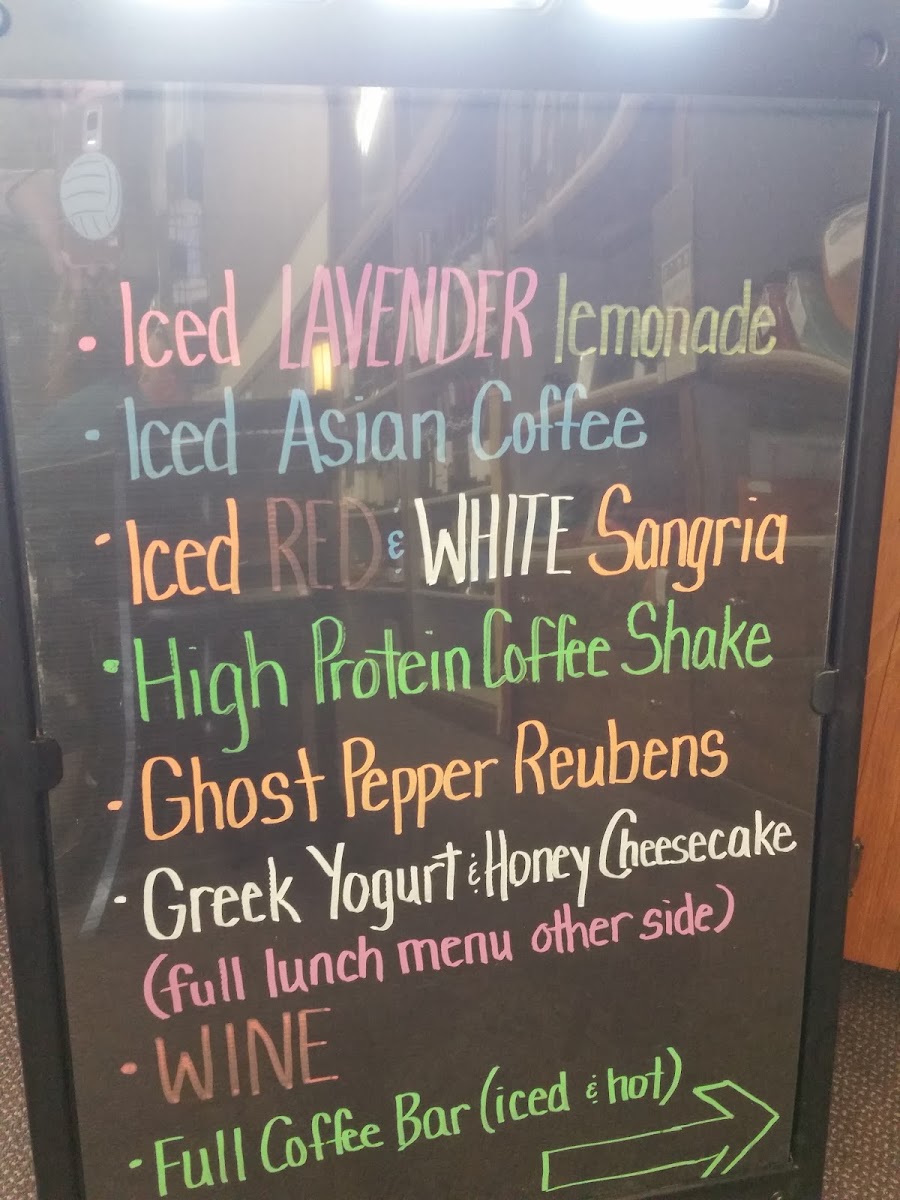 • Iced LAVENDER lemonade
• Iced Asian Coffee
• Iced RED & WHITE Sangria
• High Protein Coffee Shake
• Ghost Pepper Reubens
• Greek Yogurt & Honey Cheesecake
(full lunch menu other side)
• WINE
• Full Coffee Bar (iced & hot)